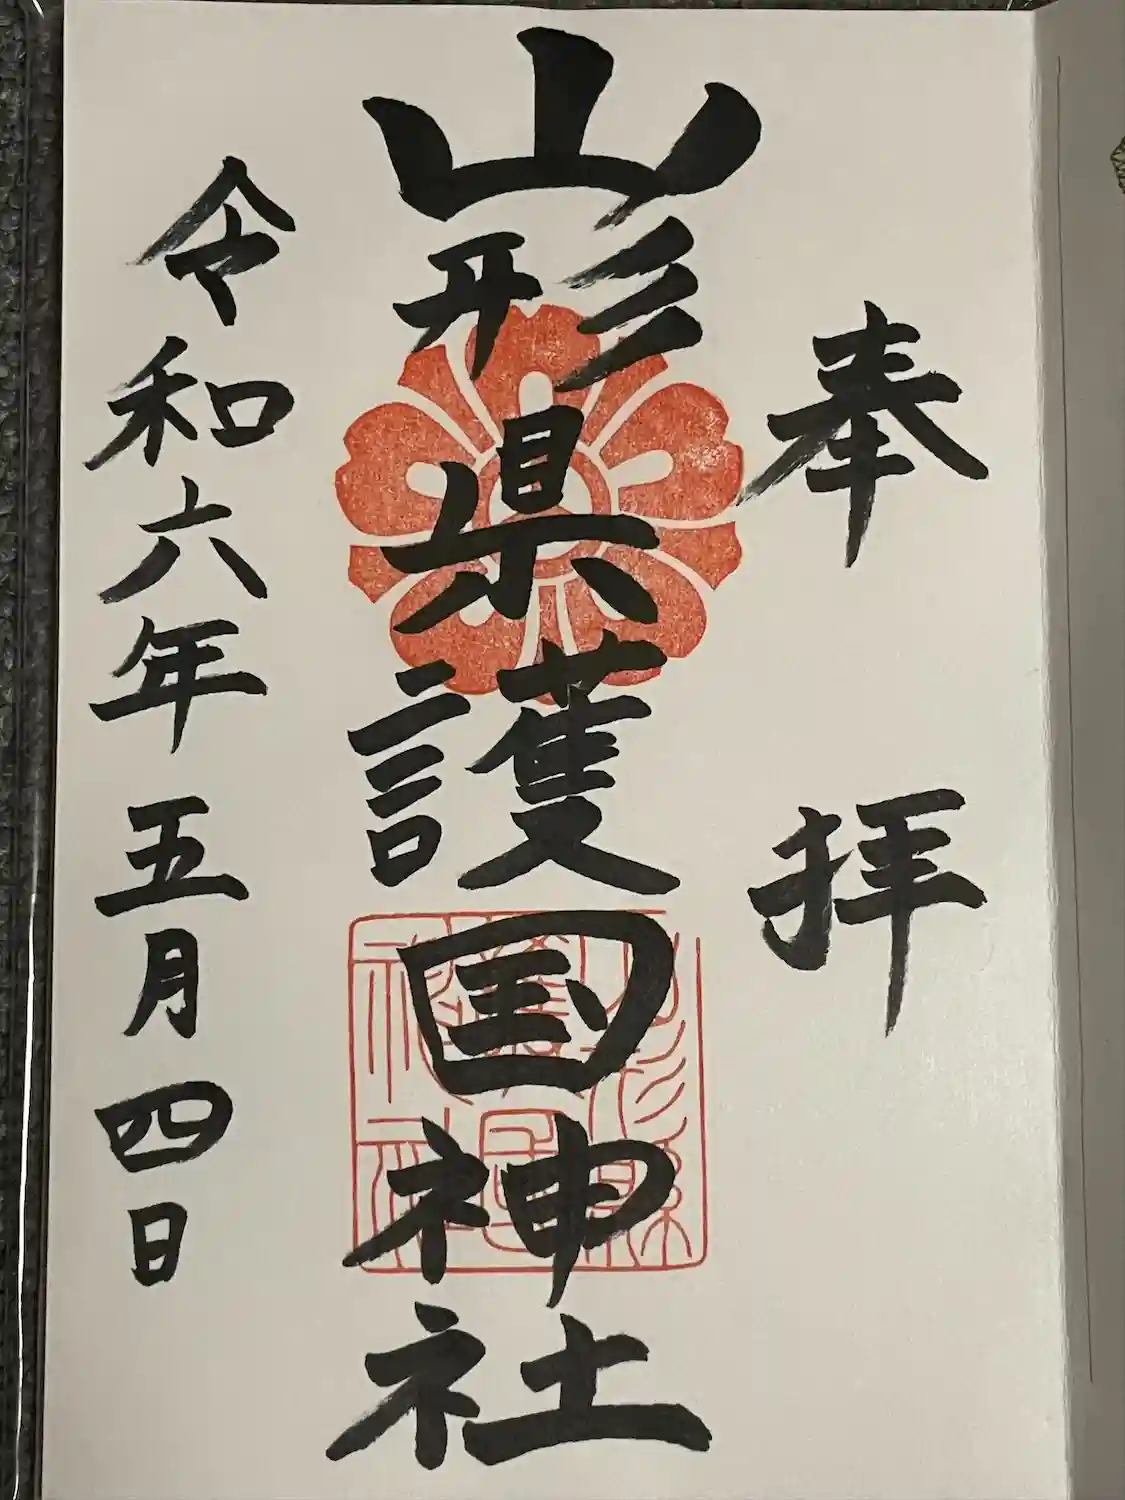 奉拝
山形県護国神社
令和六年五月四日